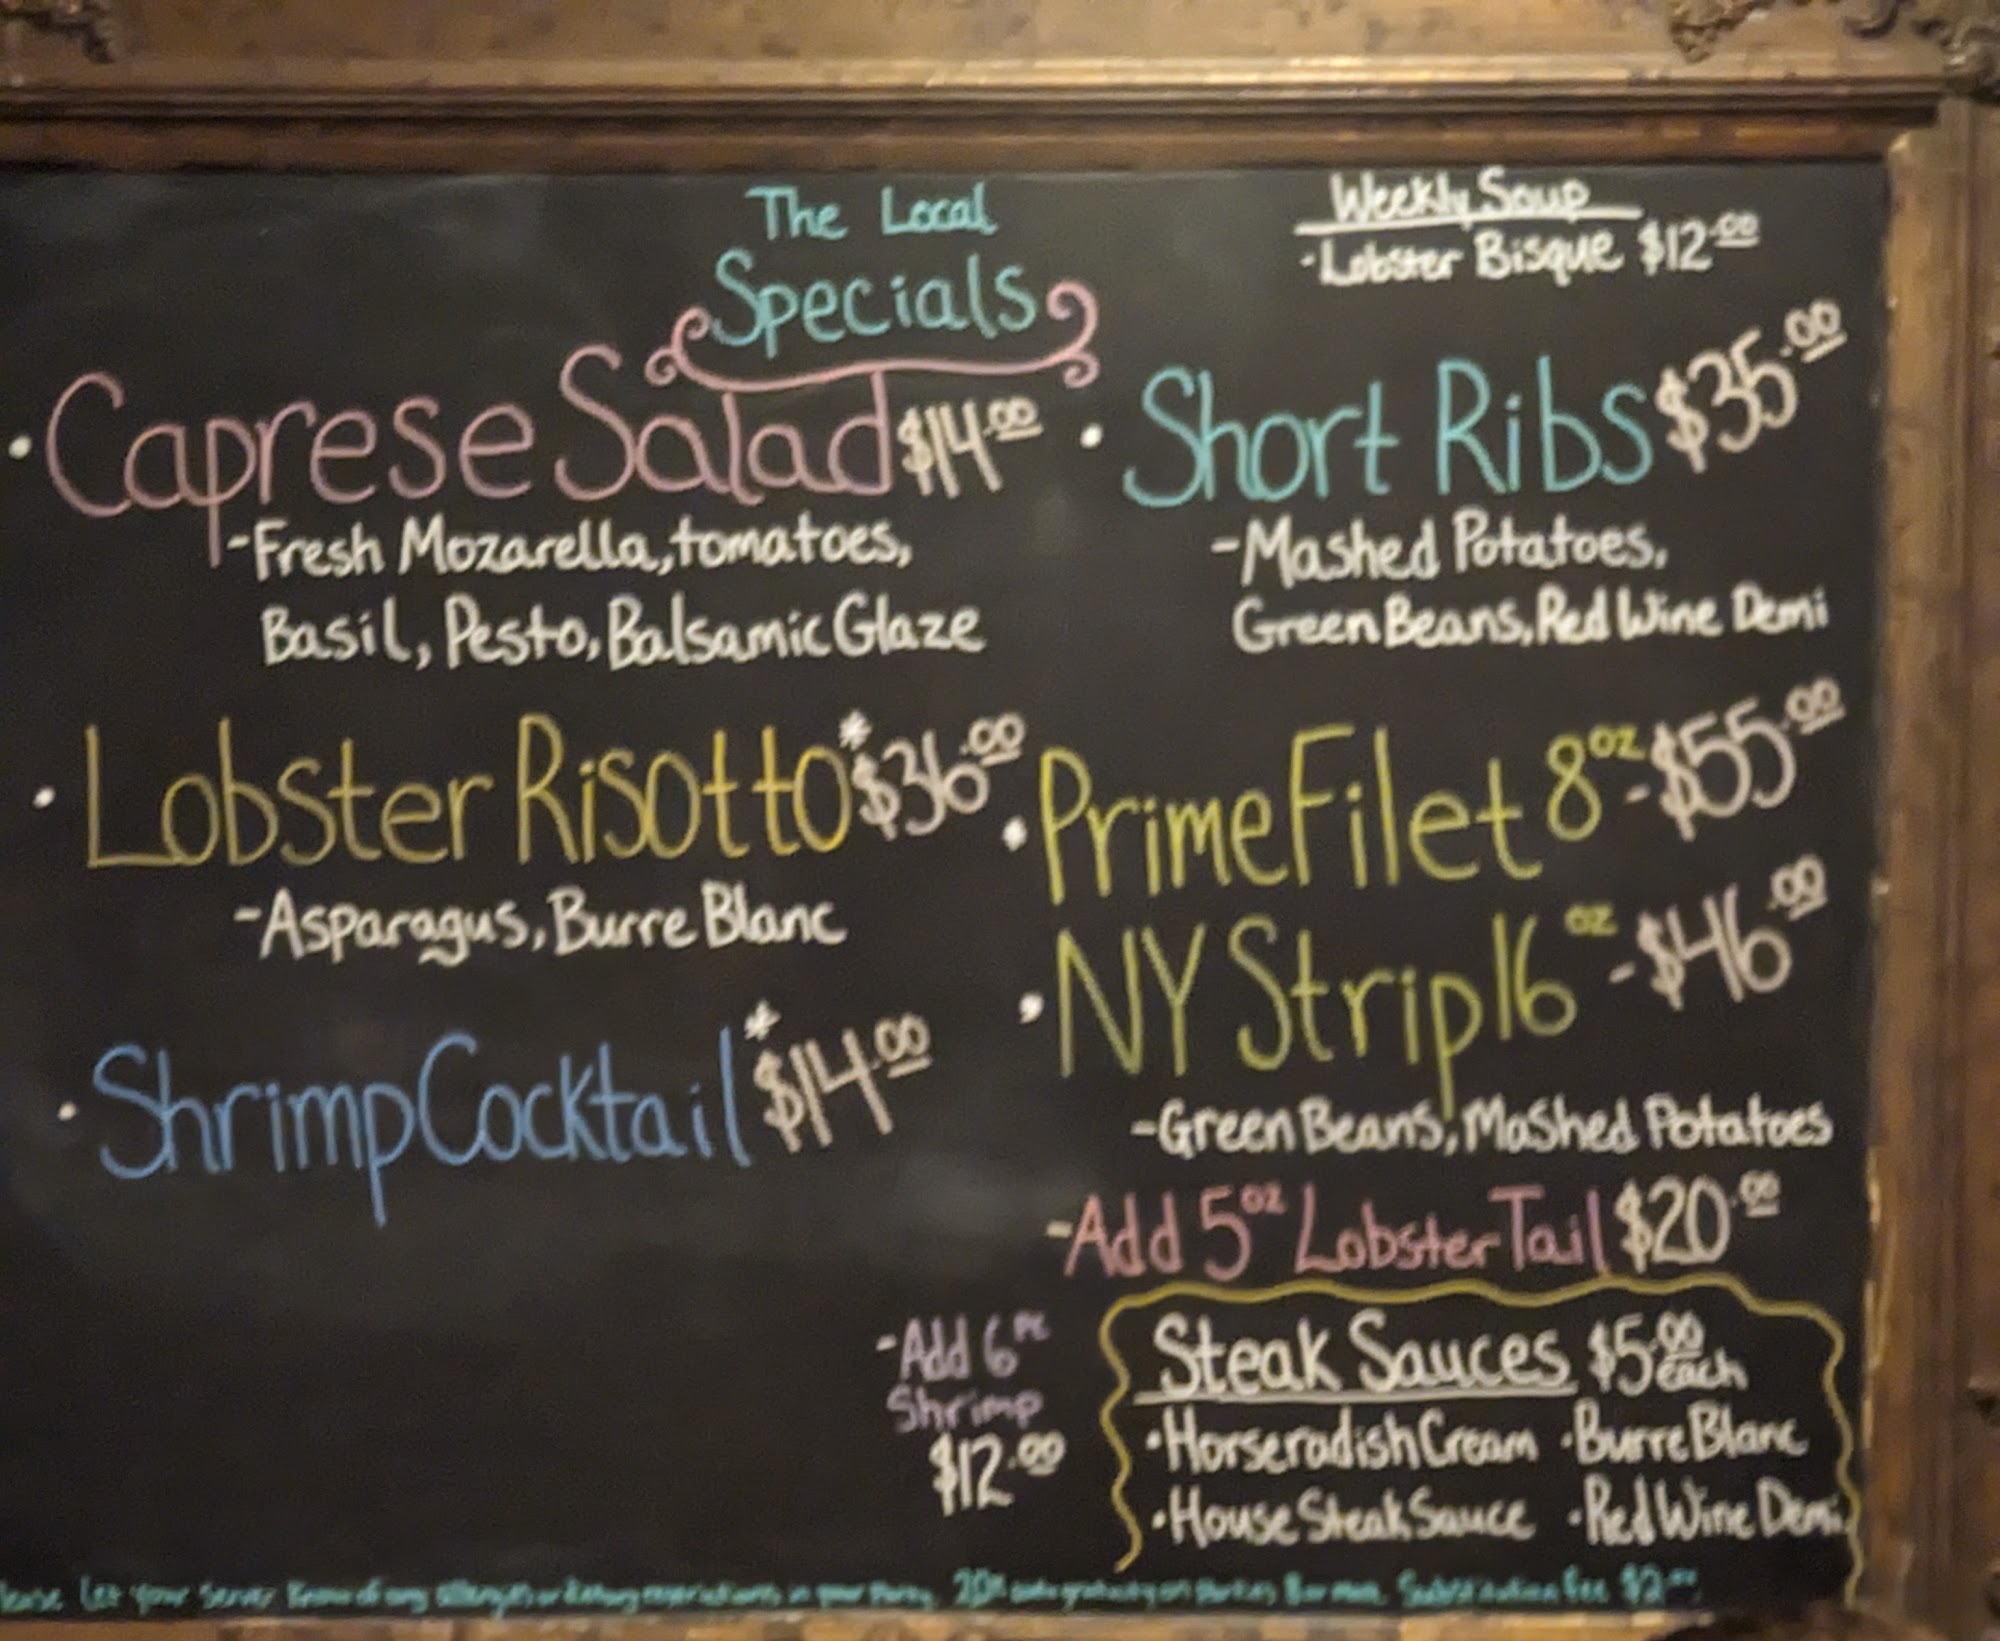 The Local
Specials
Weekly Soup
·Lobster Bisque $12.00
·Caprese Salad $14.00
-Fresh Mozarella, tomatoes,
Basil, Pesto, Balsamic Glaze
·Lobster Risotto* $36.00
-Asparagus, Burre Blanc
·Shrimp Cocktail* $14.00
·Short Ribs $35.00
-Mashed Potatoes,
Green Beans, Red Wine Demi
·Prime Filet 8oz-$55.00
·NY Strip 16oz-$46.00
-Green Beans, Mashed Potatoes
-Add 5oz Lobster Tail $20.00
-Add 6pc
Shrimp
$12.00
Steak Sauces $5.00 each
·Horseradish Cream ·Burre Blanc
·House Steak Sauce ·Red Wine Demi
lease let your server know of any allergies or dietary restrictions in your party. 20% auto gratuity on parties 8 or more. Substitution fee $2.00